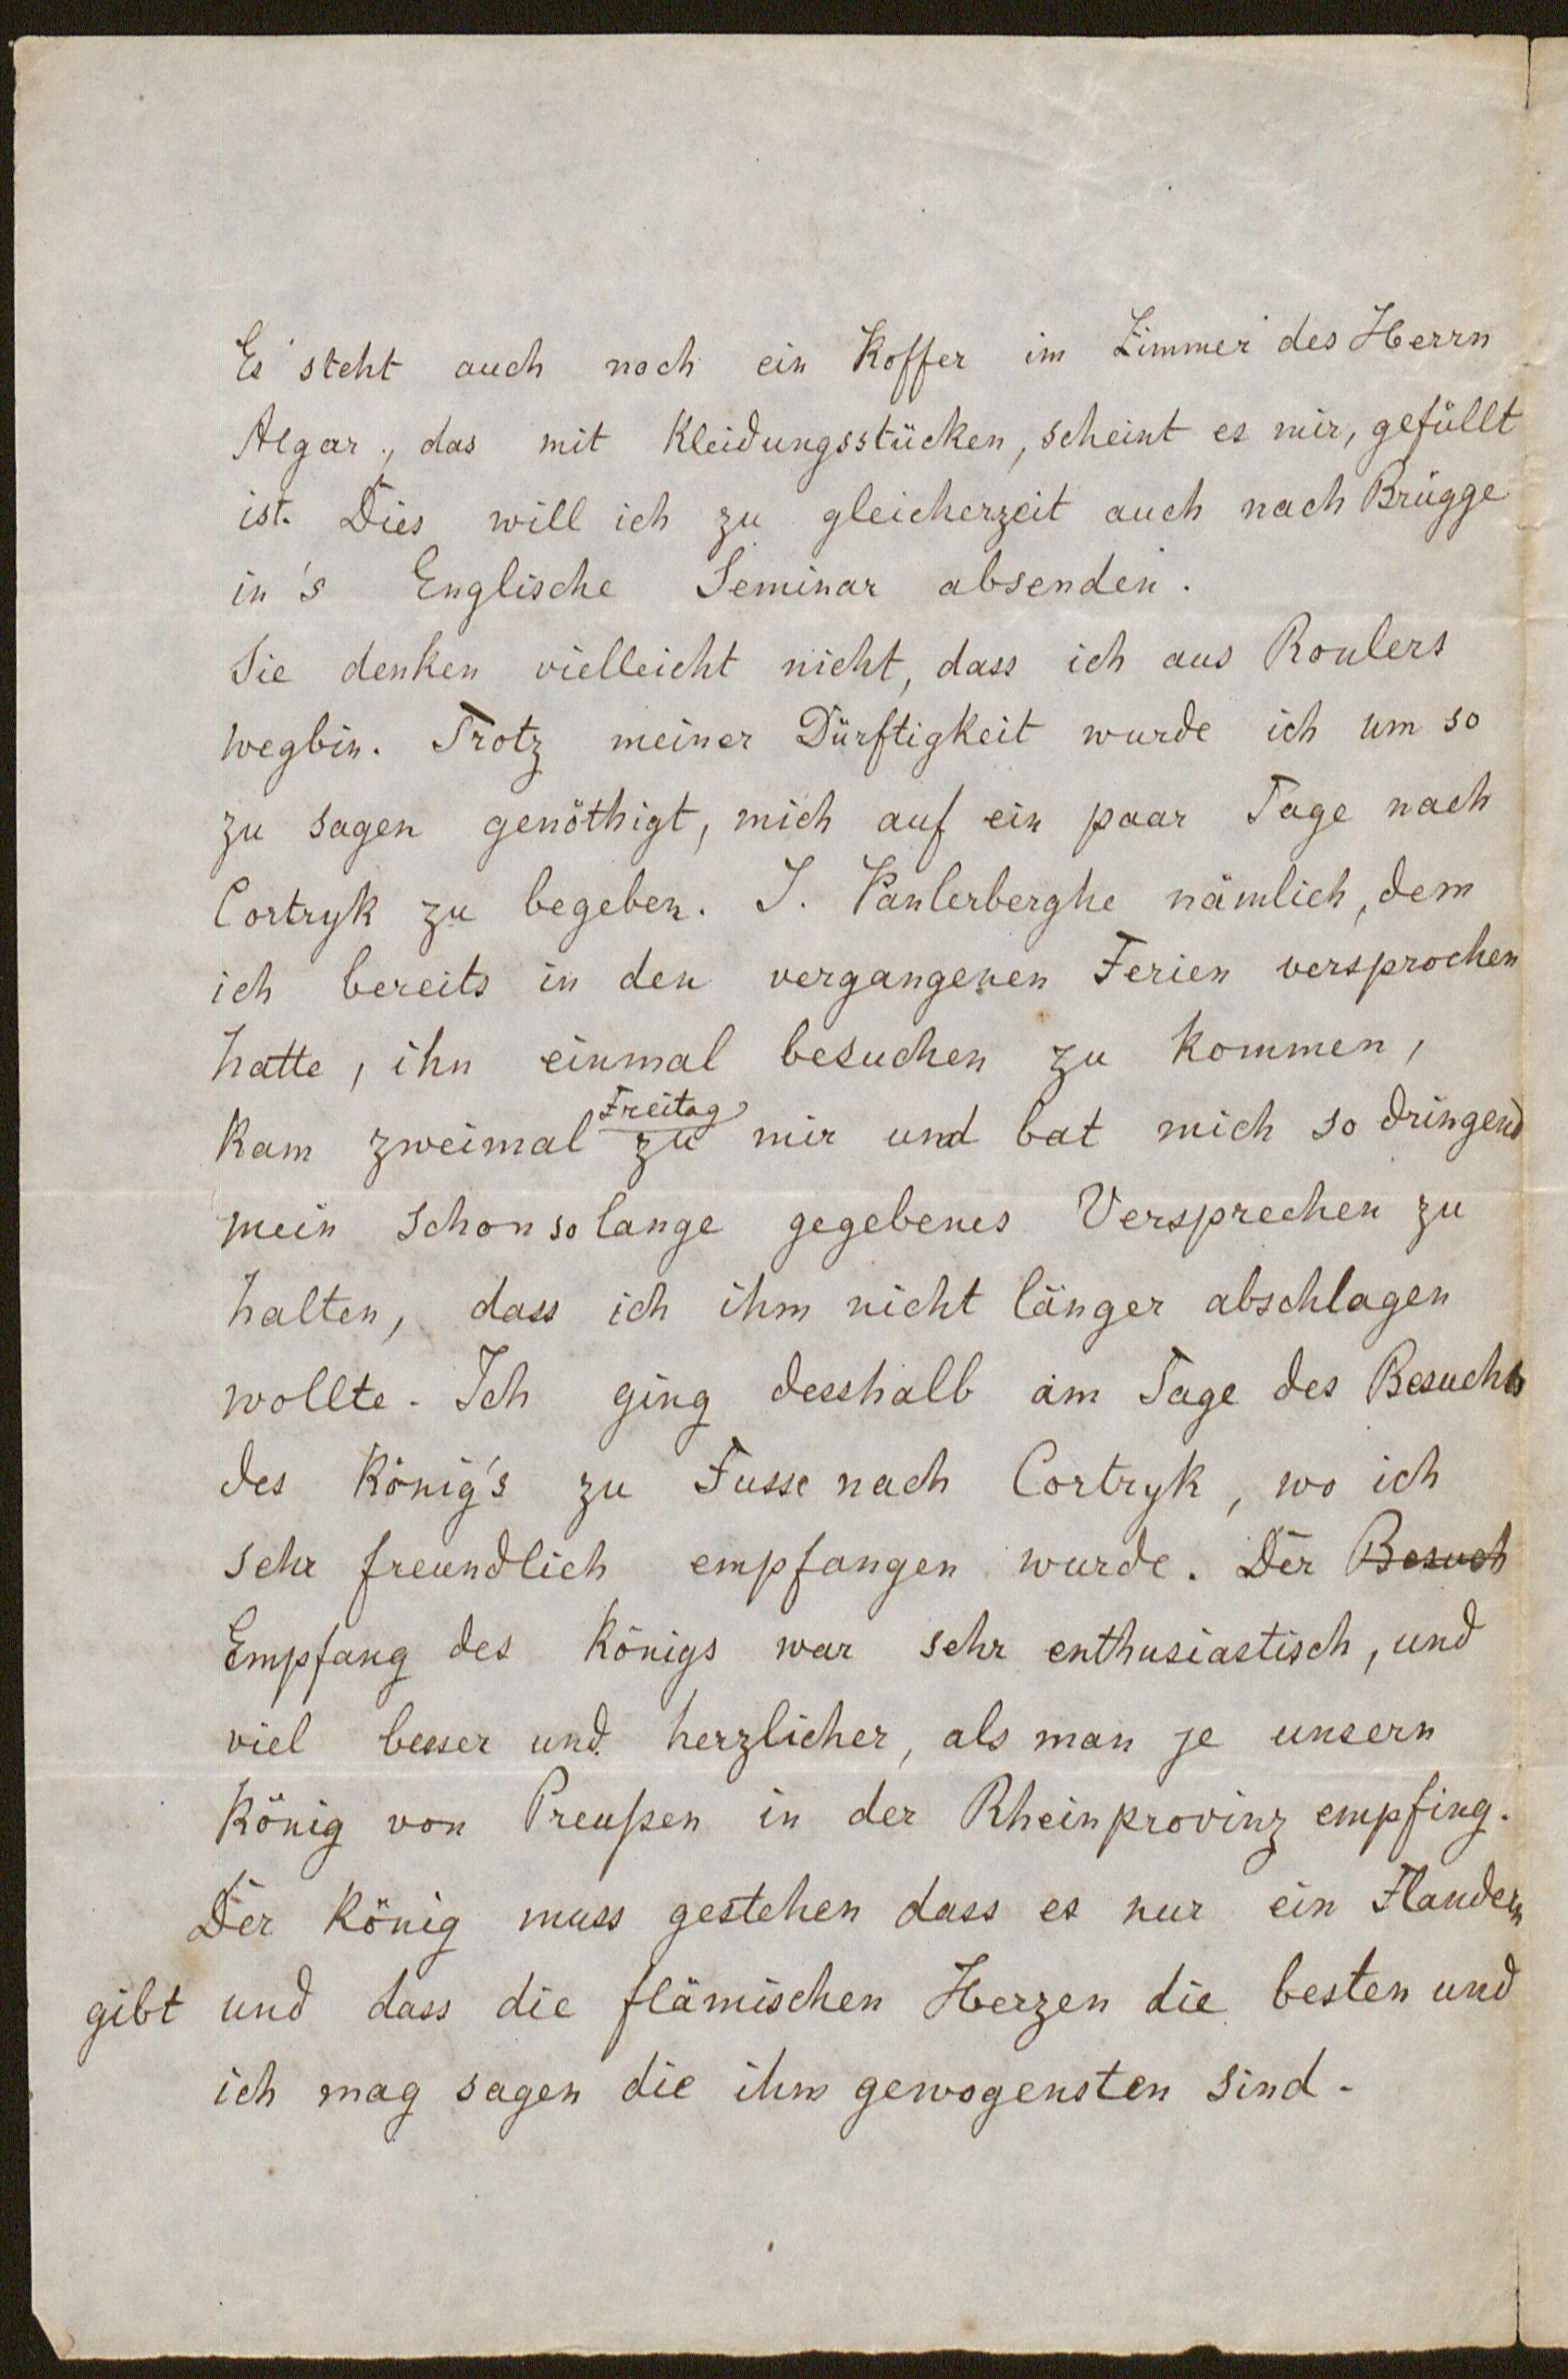 Es steht auch noch ein Koffer im Zimmer des Herrn
Algar, das mit Kleidungsstücken, scheint es mir, gefüllt
ist. Dies will ich zu gleicherzeit auch nach Brügge
in's Englische Seminar absenden.
Sie denken vielleicht nicht, dass ich aus Roulers
wegbin. Trotz meiner Dürftigkeit wurde ich um so
zu sagen genöthigt, mich auf ein paar Tage nach
Cortryk zu begeben. J. Vanlerberghe nämlich, dem
ich bereits in den vergangenen Ferien versprochen
hatte, ihn einmal besuchen zu kommen,
Freitag
kam zweimal zu mir und bat mich so dringend
mein schon so lange gegebenes Versprechen zu
halten, dass ich ihm nicht länger abschlagen
wollte. Ich ging desshalb am Tage des Besuchs
des König's zu Fusse nach Cortryk, wo ich
sehr freundlich empfangen wurde. Der Besuch
Empfang des Königs war sehr enthusiastisch, und
viel besser und herzlicher, als man je unsern
König von Preußen in der Rheinprovinz empfing.
Der König muss gestehen dass es nur ein Flandern
gibt und dass die flämischen Herzen die besten und
ich mag sagen die ihm gewogensten sind.